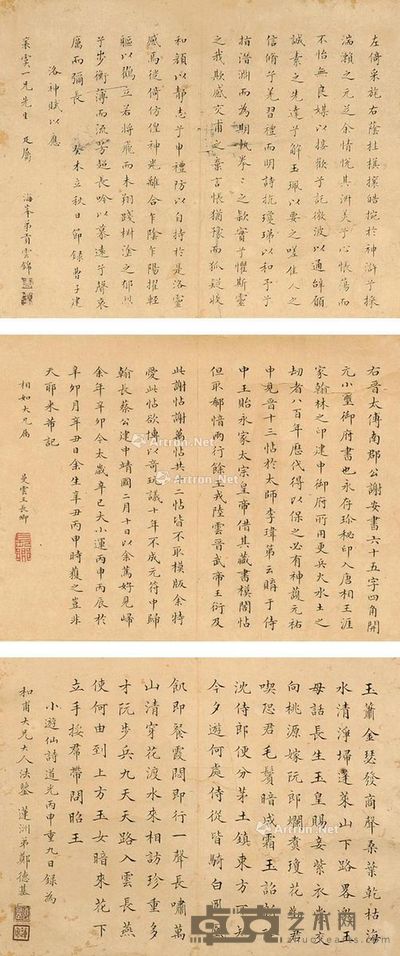 左倚采旄右蔭桂旗攘皓腕於神滸兮採
湍瀨之玄芝余情悅其淑美兮心振蕩而
不怡無良媒以接歡兮託微波以通辭願
誠素之先達兮解玉珮以要之嗟佳人之
信脩兮羌習禮而明詩抗瓊珶以和予兮
指潛淵而為期執拳拳之款實兮懼斯靈
之我欺感交甫之棄言悵猶豫而狐疑收
和顏以靜志兮申禮防以自持於是洛靈
感焉徙倚彷徨神光離合乍陰乍陽擢輕
軀以鶴立若將飛而未翔踐椒塗之郁烈
兮步衡薄而流芳超長吟以慕遠兮聲哀
厲而彌長 癸未立秋日節錄曹子建
洛神賦以應
雲一兄先生 足屬
海峯弟
右晉太傅南郡公謝安書六十五字四角開
元小璽御府書也永存珍秘印入唐相王涯
家翰林之印建中御府所用更兵火水土之
劫者八百年歷代得以保之必有神護元祐
中見晉十三帖於太師李瑋第云購于侍
中王貽永家太宗皇帝借其藏書模閣帖
但取郗愔兩行餘王戎陸雲晉武帝王衍及
此謝帖謝萬帖共十二帖皆不取模版余特
愛此帖欲博以奇玩議十年不成元符中歸
翰長蔡公建中靖國二月十日以余篤好見歸
余年辛卯今太歲辛巳大小運丙申丙辰於
辛卯月辛丑日余生辛丑丙申時獲之豈非
天耶米芾記
相如大兄屬
玉簫金瑟發商聲桑葉乾枯海
水清淨掃蓬萊山下路畧邀王
母話長生玉皇賜妾紫衣裳教
向桃源嫁阮郎爛煮瓊花勸君
喫恐君毛鬢暗成霜玉詔新除
沈侍郎便分茅土鎮東方不知
今夕遊何處侍從皆騎白鳳凰
飢即餐霞悶即行一聲長嘯萬
山清穿花渡水來相訪珍重多
才阮步兵九天天路入雲長燕
使何由到上方玉女暗來花下
立手挼裙帶問昭王
小遊仙詩道光丙申重九日錄為
和甫大兄大人法鑒 蓮洲弟鄭德基